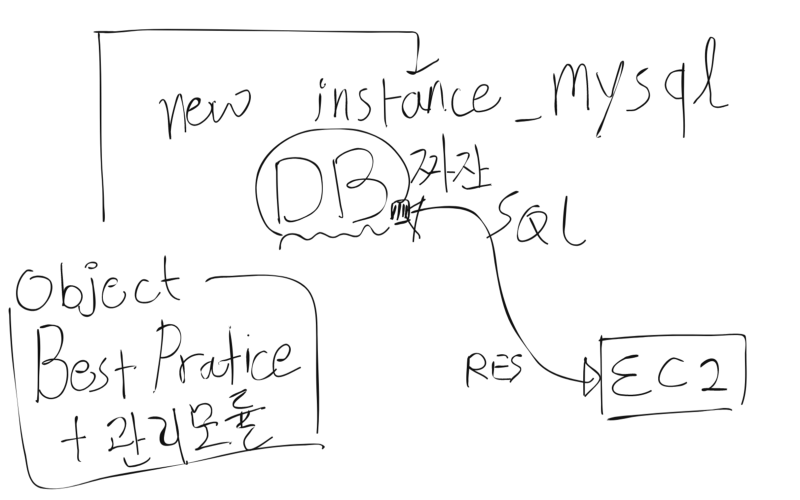 new instance_mysql
DB 짜잔
SQL
Object
Best Pratice
+ 관리모듈
RES
EC2